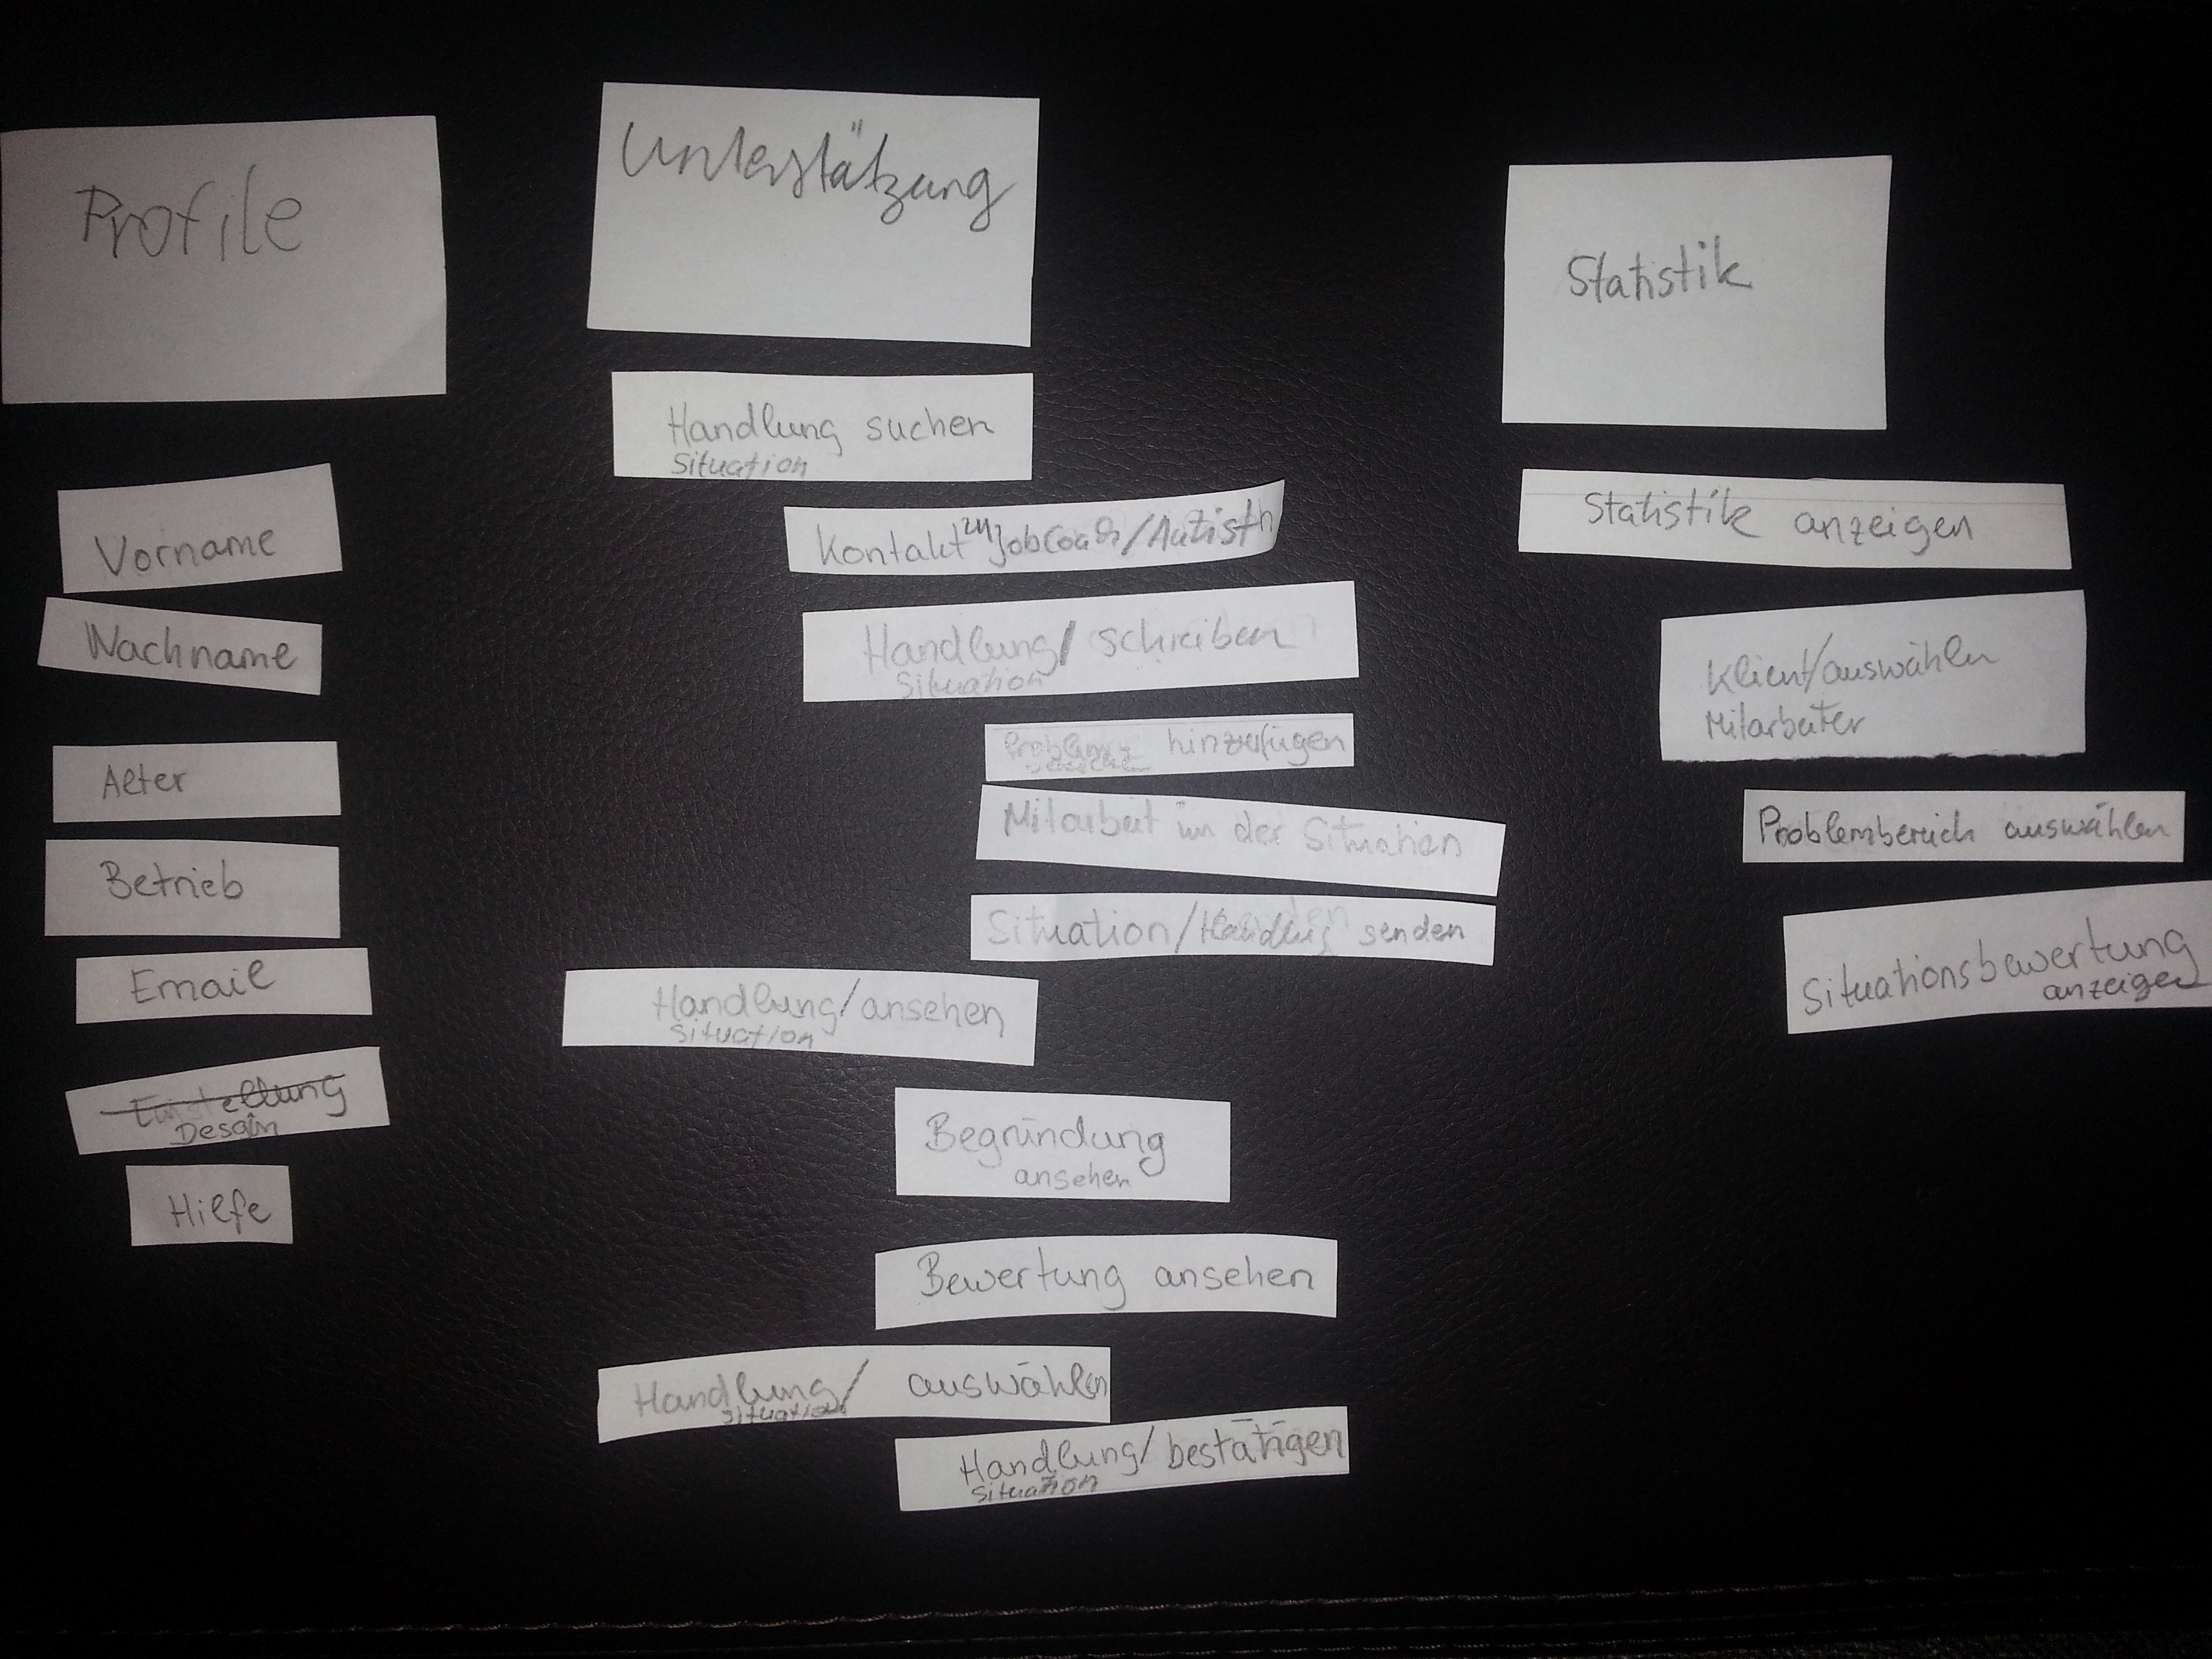 Profile
Vorname
Nachname
Alter
Betrieb
Email
Einstellung
Design
Hilfe
Unterstützung
Handlung suchen
Situation
Kontakt zu JobCoach/Autist
Handlung/ schreiben
Situation
Problem- hinzufügen
bereiche
Mitarbeit in der Situation
Situation/Handlung senden
Handlung/ansehen
Situation
Begründung
ansehen
Bewertung ansehen
Handlung/ auswählen
Situation
Handlung/bestätigen
Situation
Statistik
Statistik anzeigen
Klient/auswählen
Mitarbeiter
Problembereich auswählen
Situationsbewertung
anzeigen